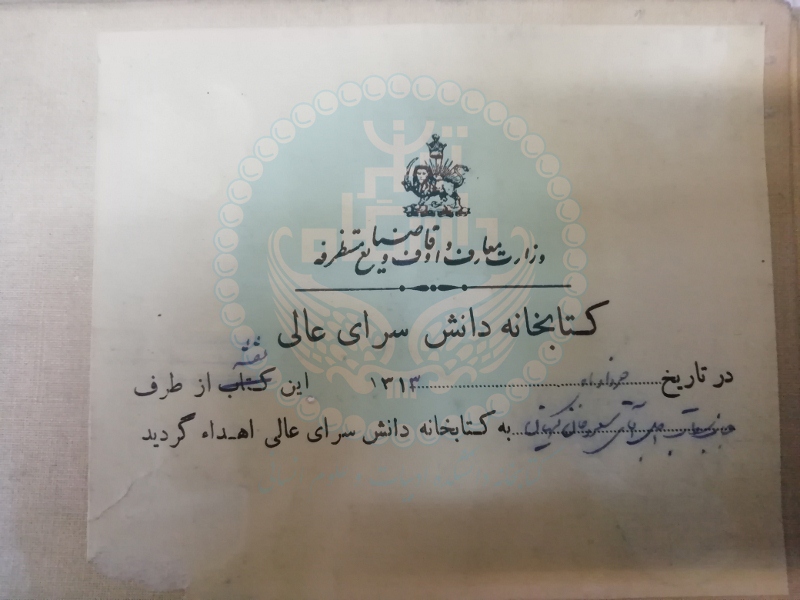 وزارت معارف و اوقاف و صنایع مستظرفه
کتابخانه دانش سرای عالی
در تاریخ خرداد ماه ۱۳۱۳ این کتاب نقشه از طرف
جناب آقای به کتابخانه دانش سرای عالی اهداء گردید